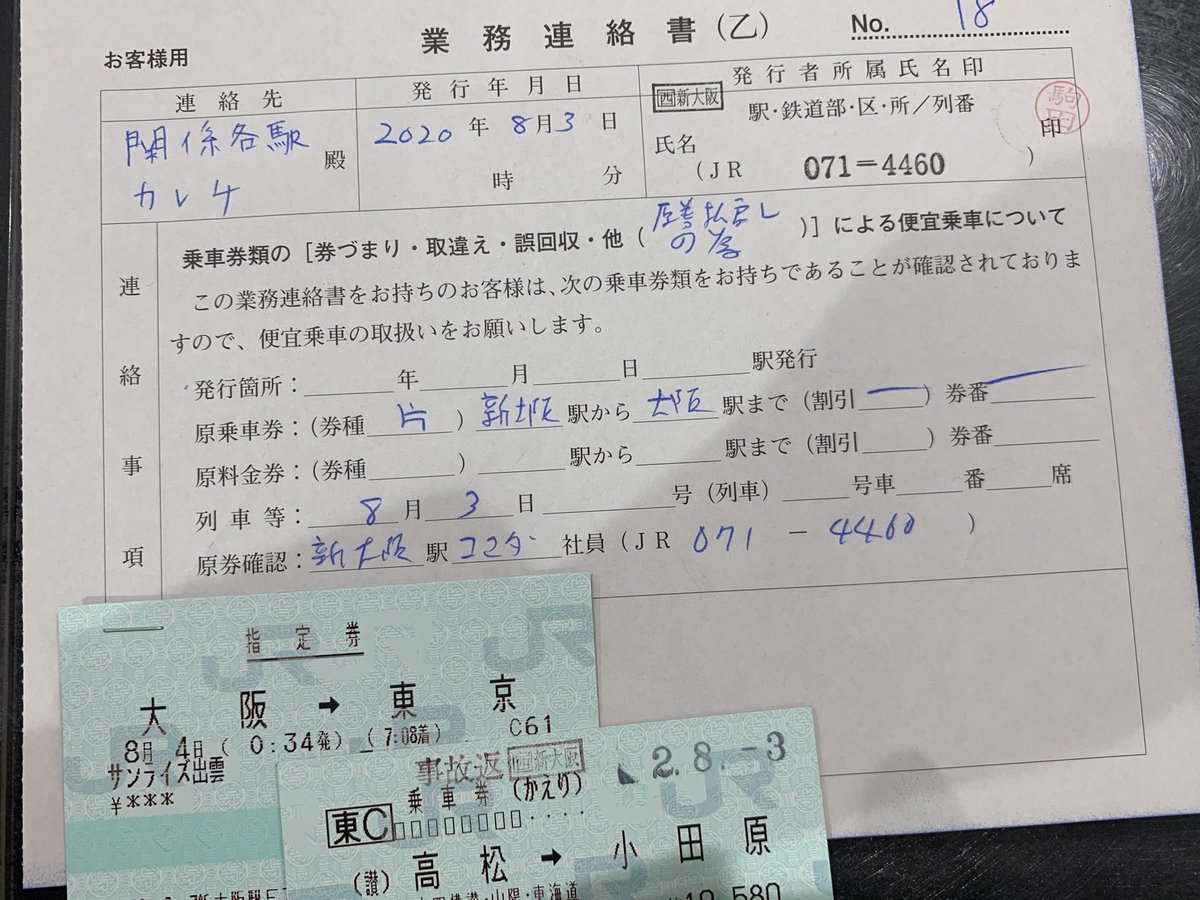 お客様用
業務連絡書(乙)
No. 18
連絡先
発行年月日
発行者所属氏名印
関係各駅
カレチ
殿
2020年8月3日
時 分
西新大阪
駅・鉄道部・区・所／列番
氏名
印
(JR 071-4460)
連絡事項
乗車券類の［券づまり・取違え・誤回収・他(差替払戻しの為)］による便宜乗車について
この業務連絡書をお持ちのお客様は、次の乗車券類をお持ちであることが確認されておりま
すので、便宜乗車の取扱いをお願いします。
発行箇所：年 月 日 駅発行
原乗車券：(券種 片)新大阪駅から大阪駅まで(割引 ー)券番 ー
原料金券：(券種 )駅から 駅まで(割引 )券番
列車等：8月3日 号(列車) 号車 番 席
原券確認：新大阪駅 コマダ 社員(JR 071-4460)
指定券
大阪 → 東京
8月 4日( 0:34発) (7:08着) C61
サンライズ出雲
¥***
事故返 西新大阪 2.8.-3
乗車券(かえり)
東C □□□□□□□□････
(讃)高松 → 小田原